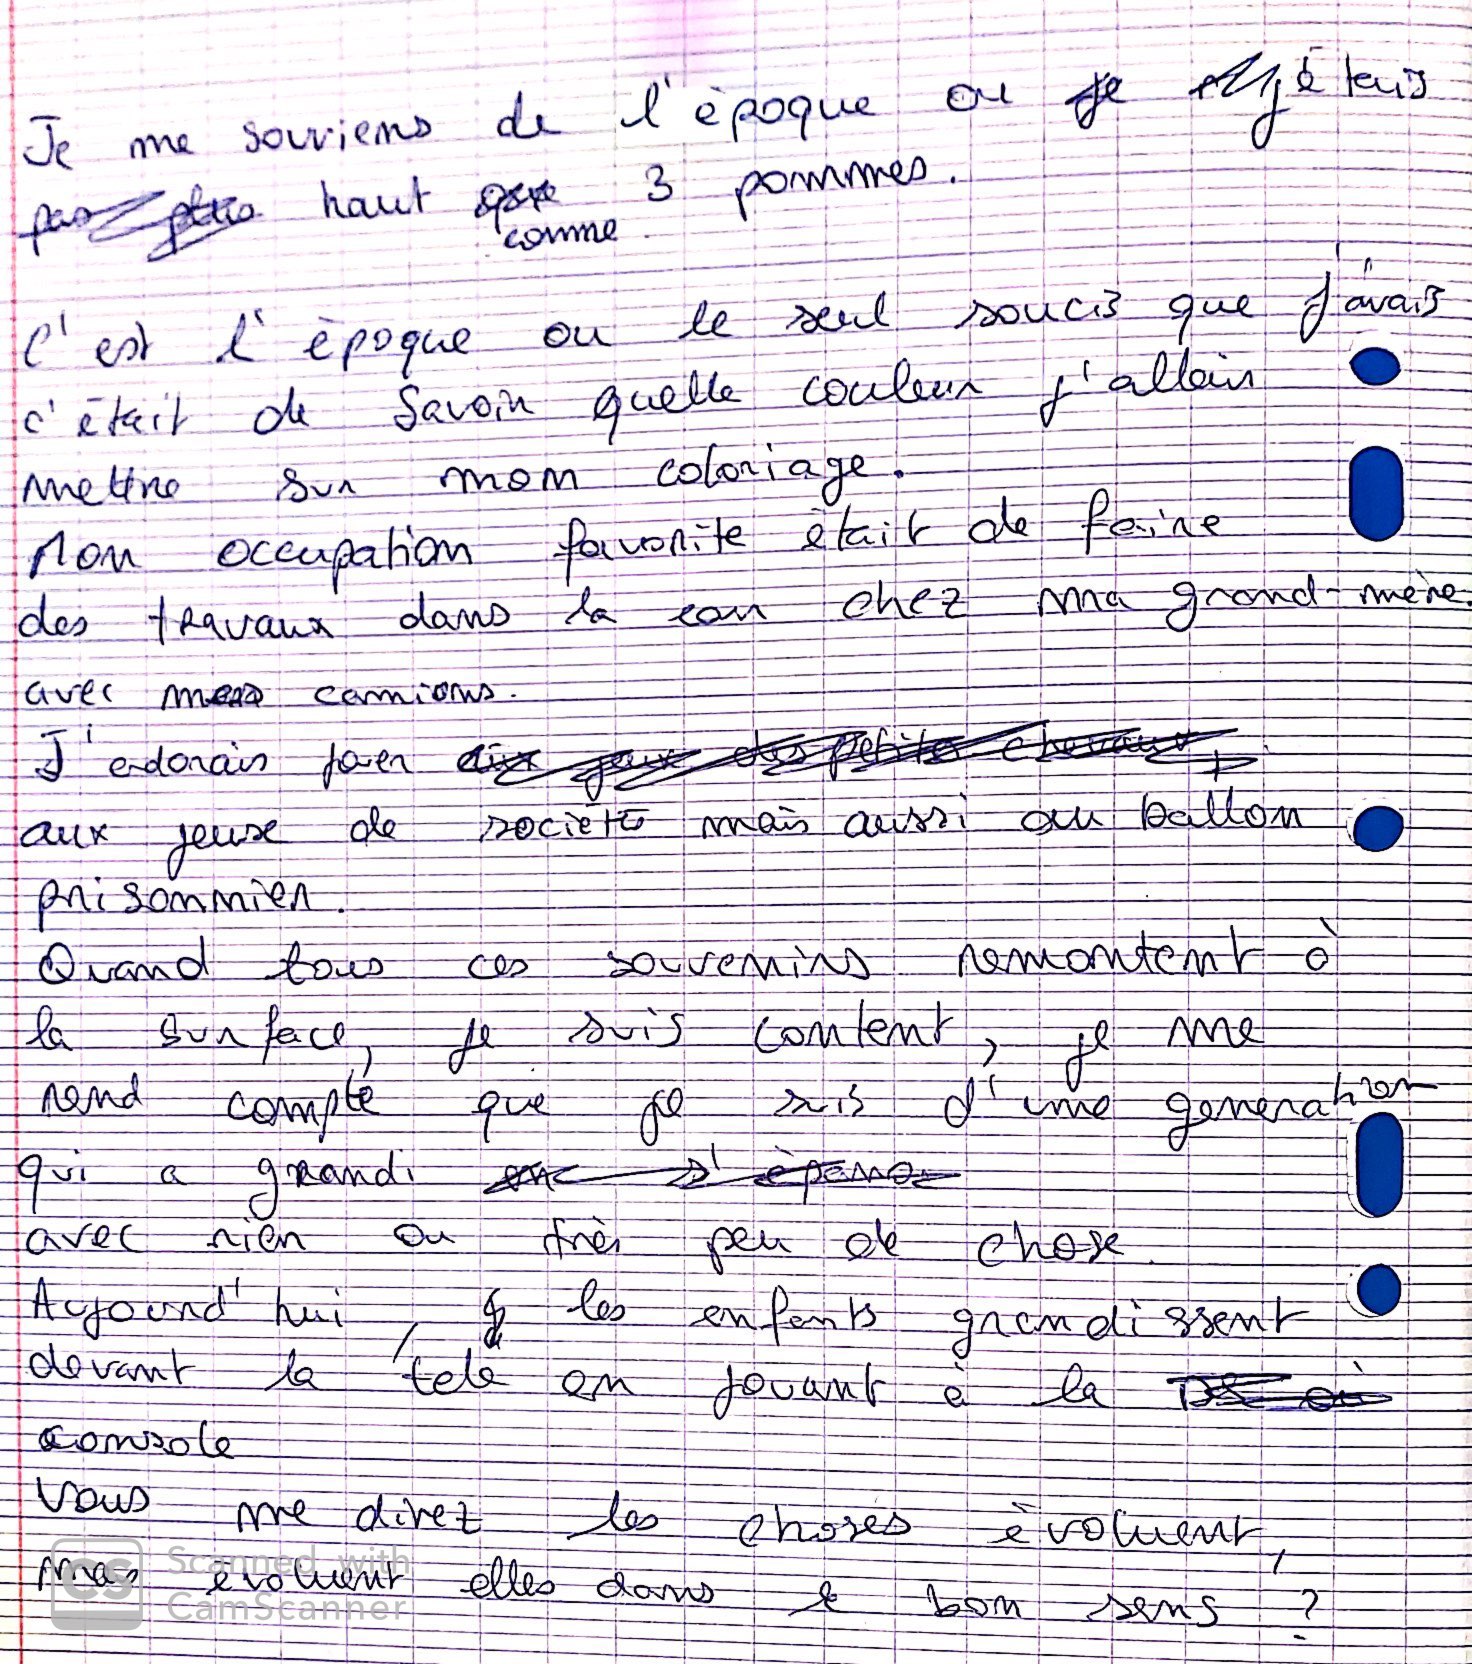 Je me souviens de l'époque ou j'étais
haut comme 3 pommes.
C'est l'époque ou le seul soucis que j'avais
c'était de savoir quelle couleur j'allais
mettre sur mon coloriage.
Mon occupation favorite était de faire
des travaux dans la cour chez ma grand-mère
avec mes camions.
J'adorais jouer
aux jeux de société mais aussi au ballon
prisonnier.
Quand tous ces souvenirs remontent à
la surface, je suis content, je me
rend compte que je suis d'une generation
qui a grandi
avec rien ou très peu de chose.
Aujourd'hui, les enfants grandissent
devant la télé en jouant à la
console
Vous me direz les choses évoluent,
mais évoluent elles dans le bon sens ?
CS Scanned with
CamScanner